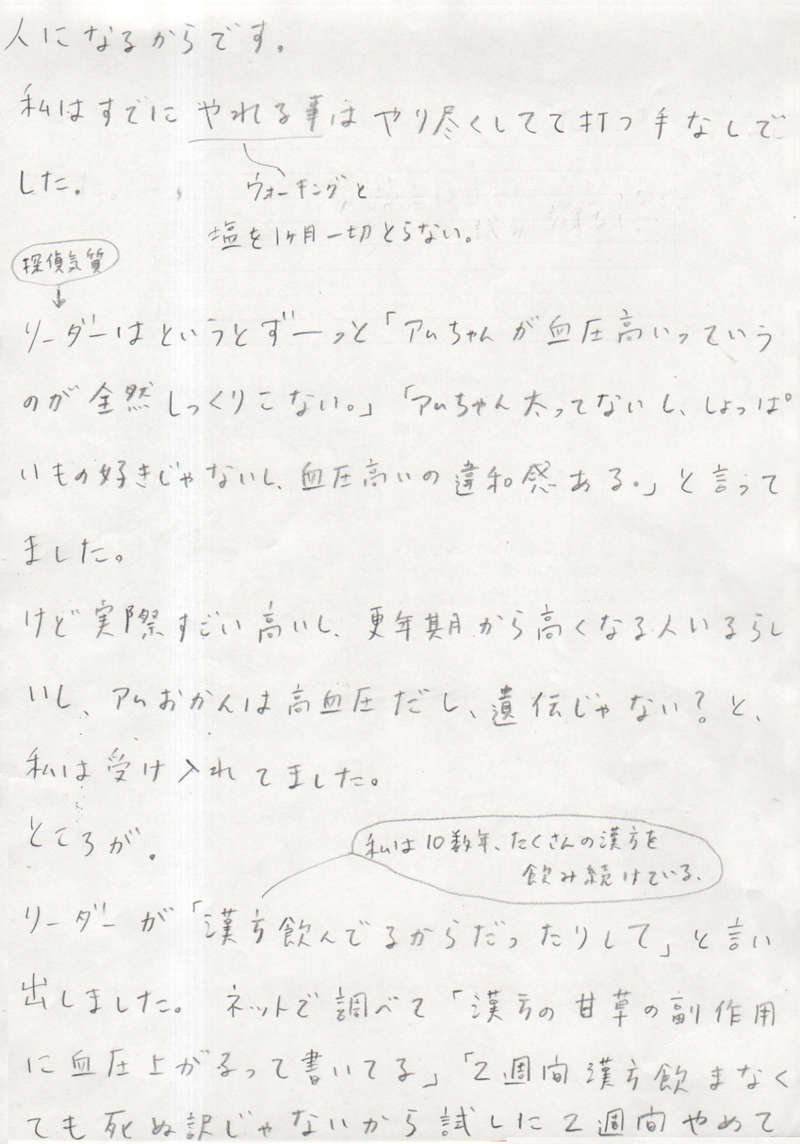 人になるからです。
私はすでにやれる事はやり尽くしてて打つ手なしで
した。
ウォーキングと
塩を1ヶ月一切とらない。
探偵気質
リーダーはというとずーっと「アムちゃんが血圧高いっていう
のが全然しっくりこない。」「アムちゃん太ってないし、しょっぱ
いもの好きじゃないし、血圧高いの違和感ある。」と言って
ました。
けど実際すごい高いし、更年期から高くなる人いるらし
いし、アムおかんは高血圧だし、遺伝じゃない?と、
私は受け入れてました。
ところが。
私は10数年、たくさんの漢方を
飲み続けている。
リーダーが「漢方飲んでるからだったりして」と言い
出しました。ネットで調べて「漢方の甘草の副作用
に血圧上がるって書いてる」「2週間漢方飲まなく
ても死ぬ訳じゃないから試しに2週間やめて